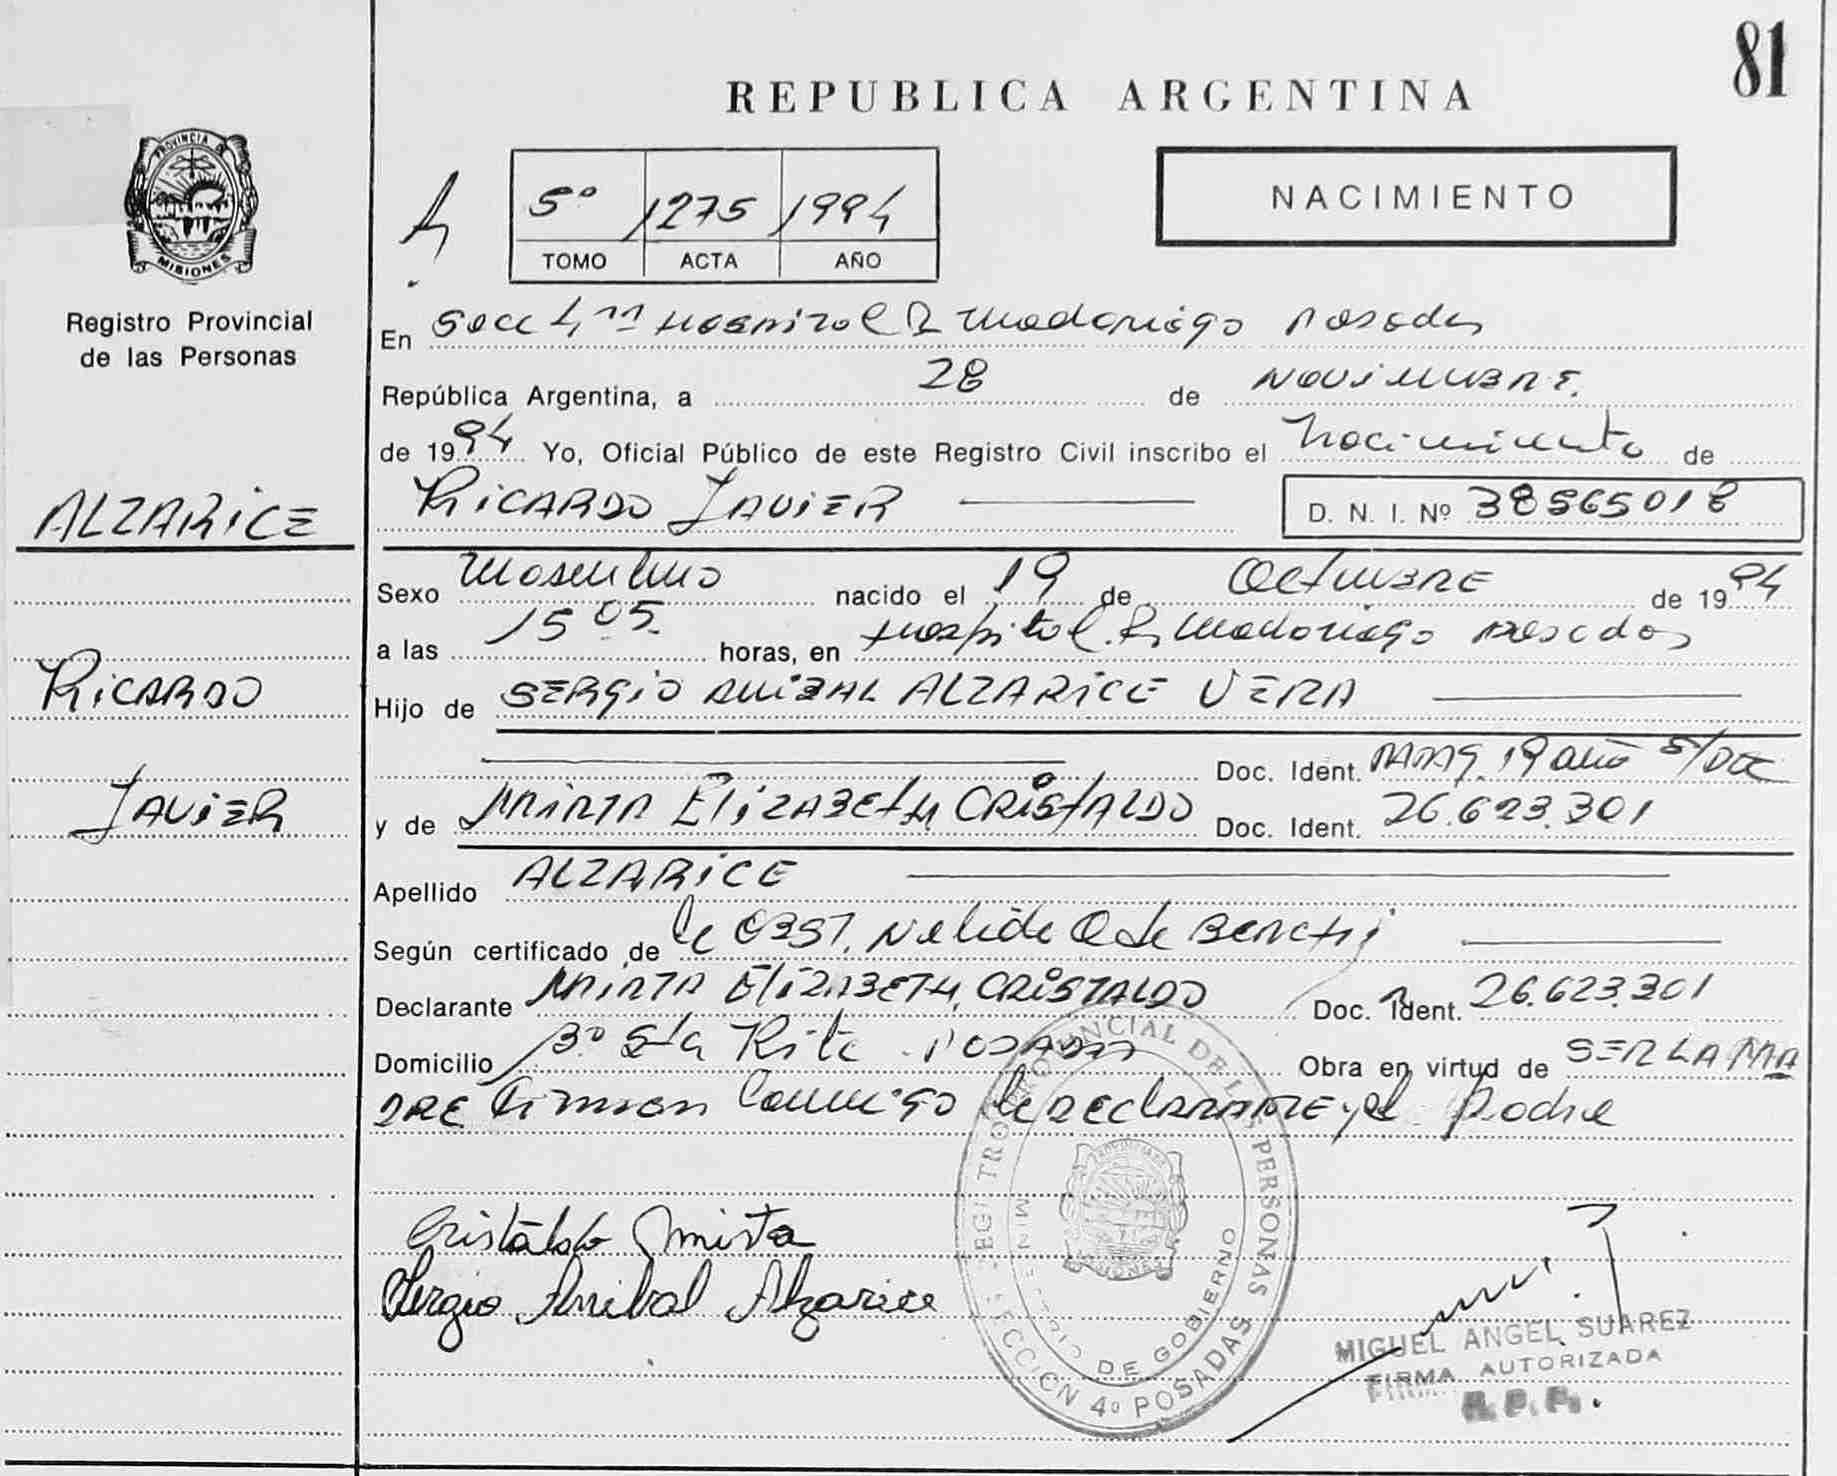 81
REPUBLICA ARGENTINA
PROVINCIA DE
MISIONES
Registro Provincial
de las Personas
5º 1275 1994
TOMO ACTA AÑO
NACIMIENTO
En Secc 4ª Hospital R Madariaga Posadas
República Argentina, a 28 de NOVIEMBRE.
de 1994 Yo, Oficial Público de este Registro Civil inscribo el Nacimiento de
ALZARICE
RICARDO JAVIER D. N. I. Nº 38565018
Sexo Masculino nacido el 19 de OCTUBRE de 1994
a las 15 05. horas, en Hospital R. Madariaga Posadas
RICARDO
Hijo de SERGIO ANIBAL ALZARICE VERA
Doc. Ident. 19 año S/DOC
JAVIER
y de MIRTA ELIZABETH CRISTALDO Doc. Ident. 26.623.301
Apellido ALZARICE
Según certificado de la OBST. Nelida de
Declarante MIRTA ELIZABETH CRISTALDO Doc. Ident. 26.623.301
Domicilio Bº Sta Rita POSADAS Obra en virtud de SER LA MA
DRE Firman Conmigo la DECLARANTE y el Padre
Cristaldo Mirta
Sergio Anibal Alzarice
REGISTRO PROVINCIAL DE LAS PERSONAS
MINISTERIO DE GOBIERNO
SECCION 4º POSADAS
MIGUEL ANGEL SUAREZ
FIRMA AUTORIZADA
R. P. P.